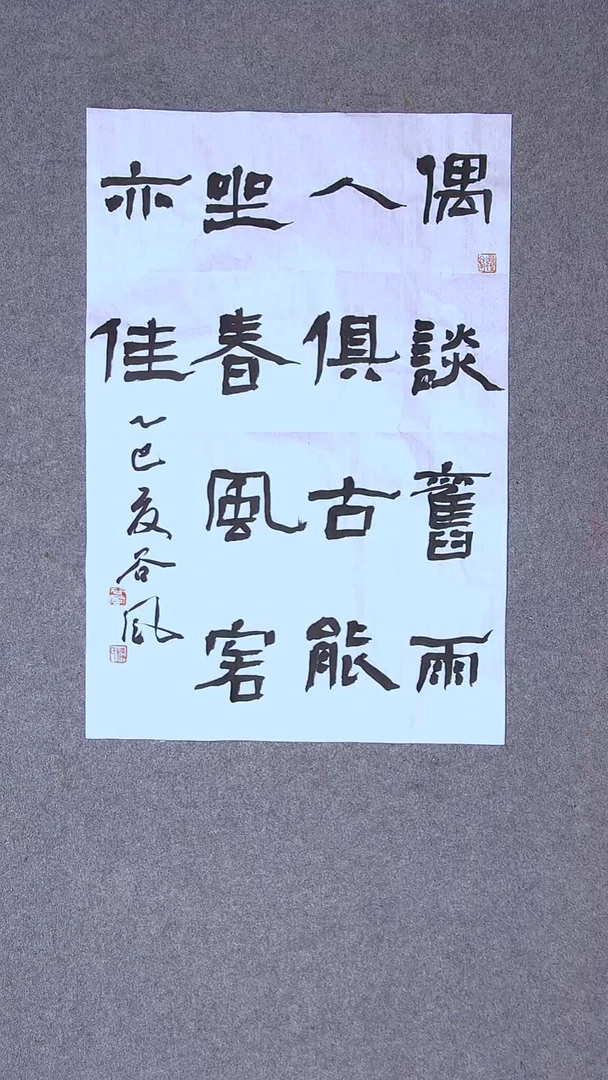 偶談舊雨
人俱古能
坐春風客
亦佳
乙巳夏谷風